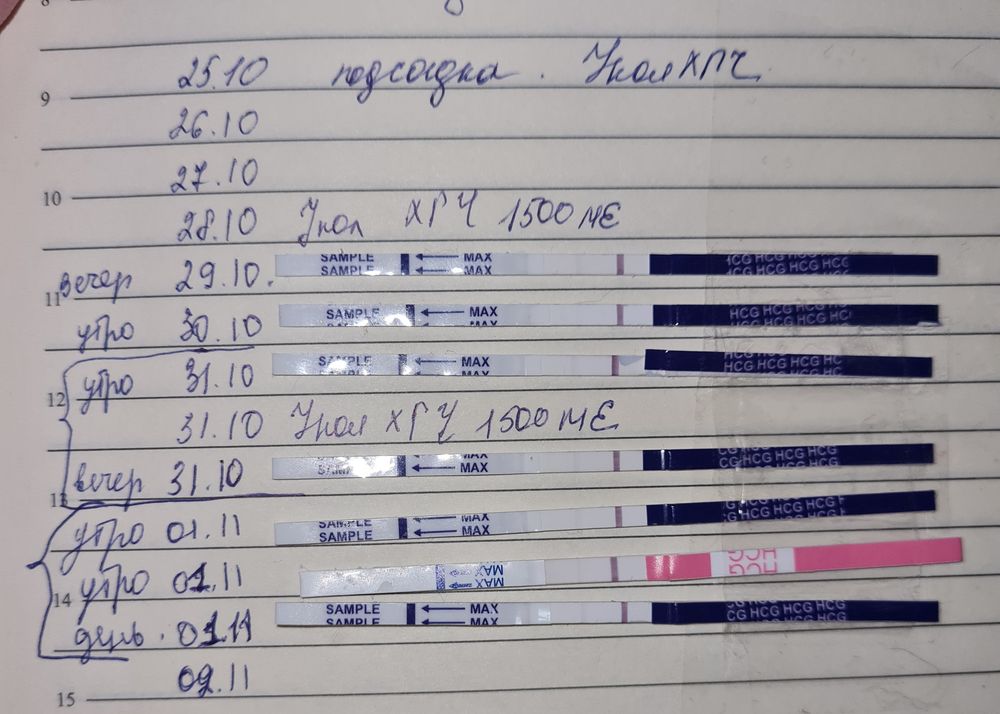 8
25.10 подсадка. Укол ХГЧ
9
26.10
27.10
10
28.10 Укол ХГЧ 1500 МЕ
вечер 29.10. SAMPLE MAX HCG HCG HCG HCG
SAMPLE MAX CG HCG HCG HCG
11
утро 30.10 SAMPLE MAX HCG HCG HCG HCG
утро 31.10 SAMPLE MAX HCG HCG HCG HC
SAMPLE MAX HCG HCG HCG HCG
12
31.10 Укол ХГЧ 1500 МЕ
вечер 31.10 MAX CG HCG HCG HCG
13
утро 01.11 SAMPLE MAX HCG HCG HCG
SAMPLE MAX G HCG HCG HCG
утро 01.11 MAX HCG
MAX HCG
14
день. 01.11 SAMPLE MAX CG HCG HCG HCG
SAMPLE MAX CG HCG HCG HCG
02.11
15